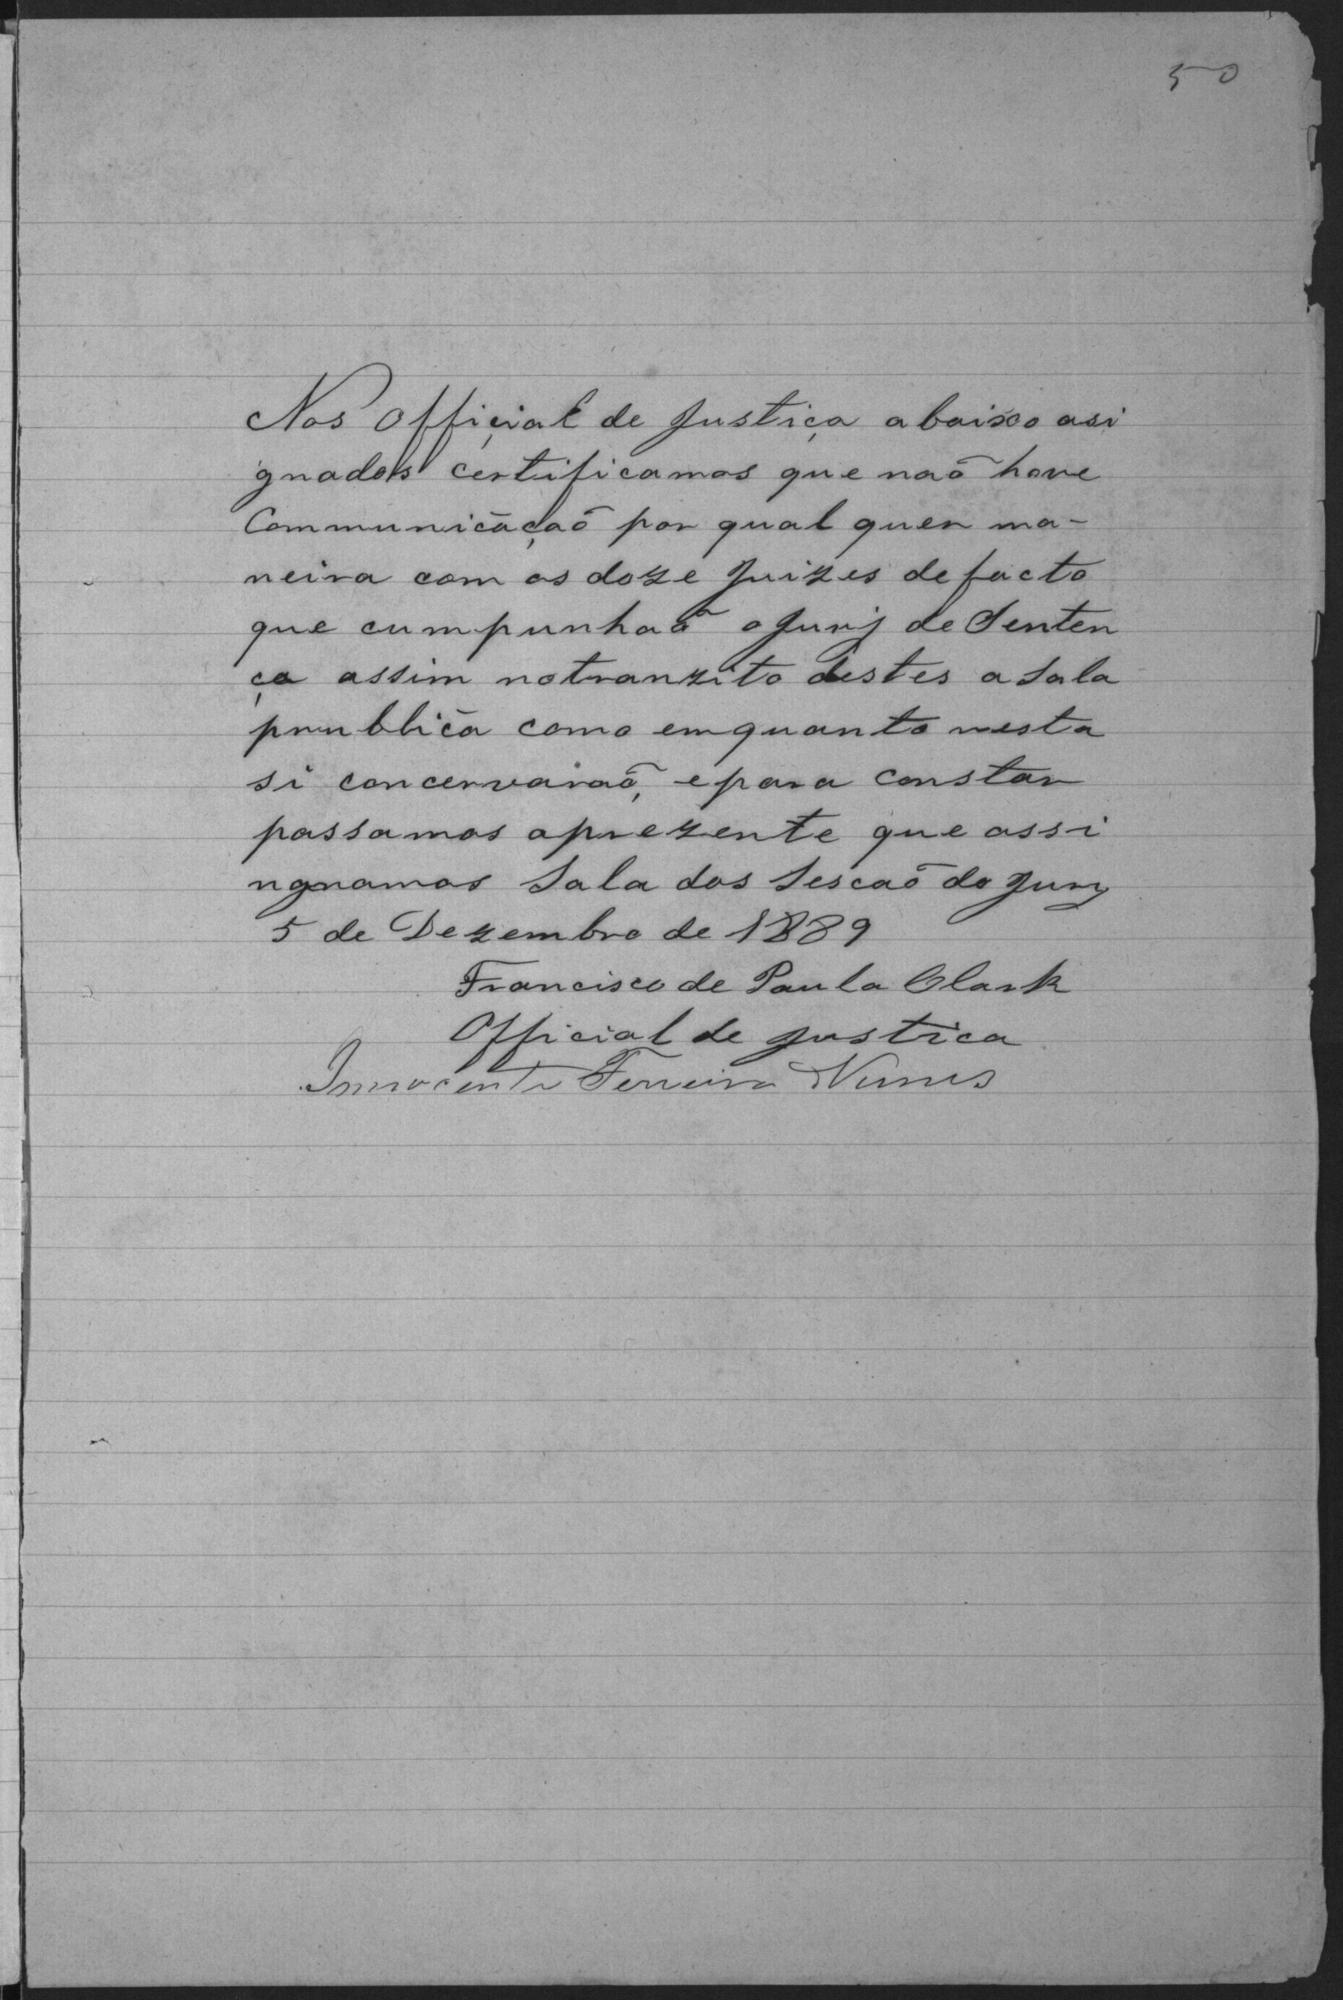 50
Nos Official de Justiça abaixo asi
gnados certificamos que naõ hove
Communicaçaõ por qual quer ma-
neira com os doze Juizes de facto
que cumpunhaõ o Jury de Senten
ça assim no tranzito destes a Sala
prublica como emquanto nesta
si concervaraõ, e para constar
passamos aprezente que assi
ngnamos Sala das Sescaõ do Jury
5 de Dezembro de 1889
Francisco de Paula Clark
Official de Justica
Innocente Ferreira Nunes